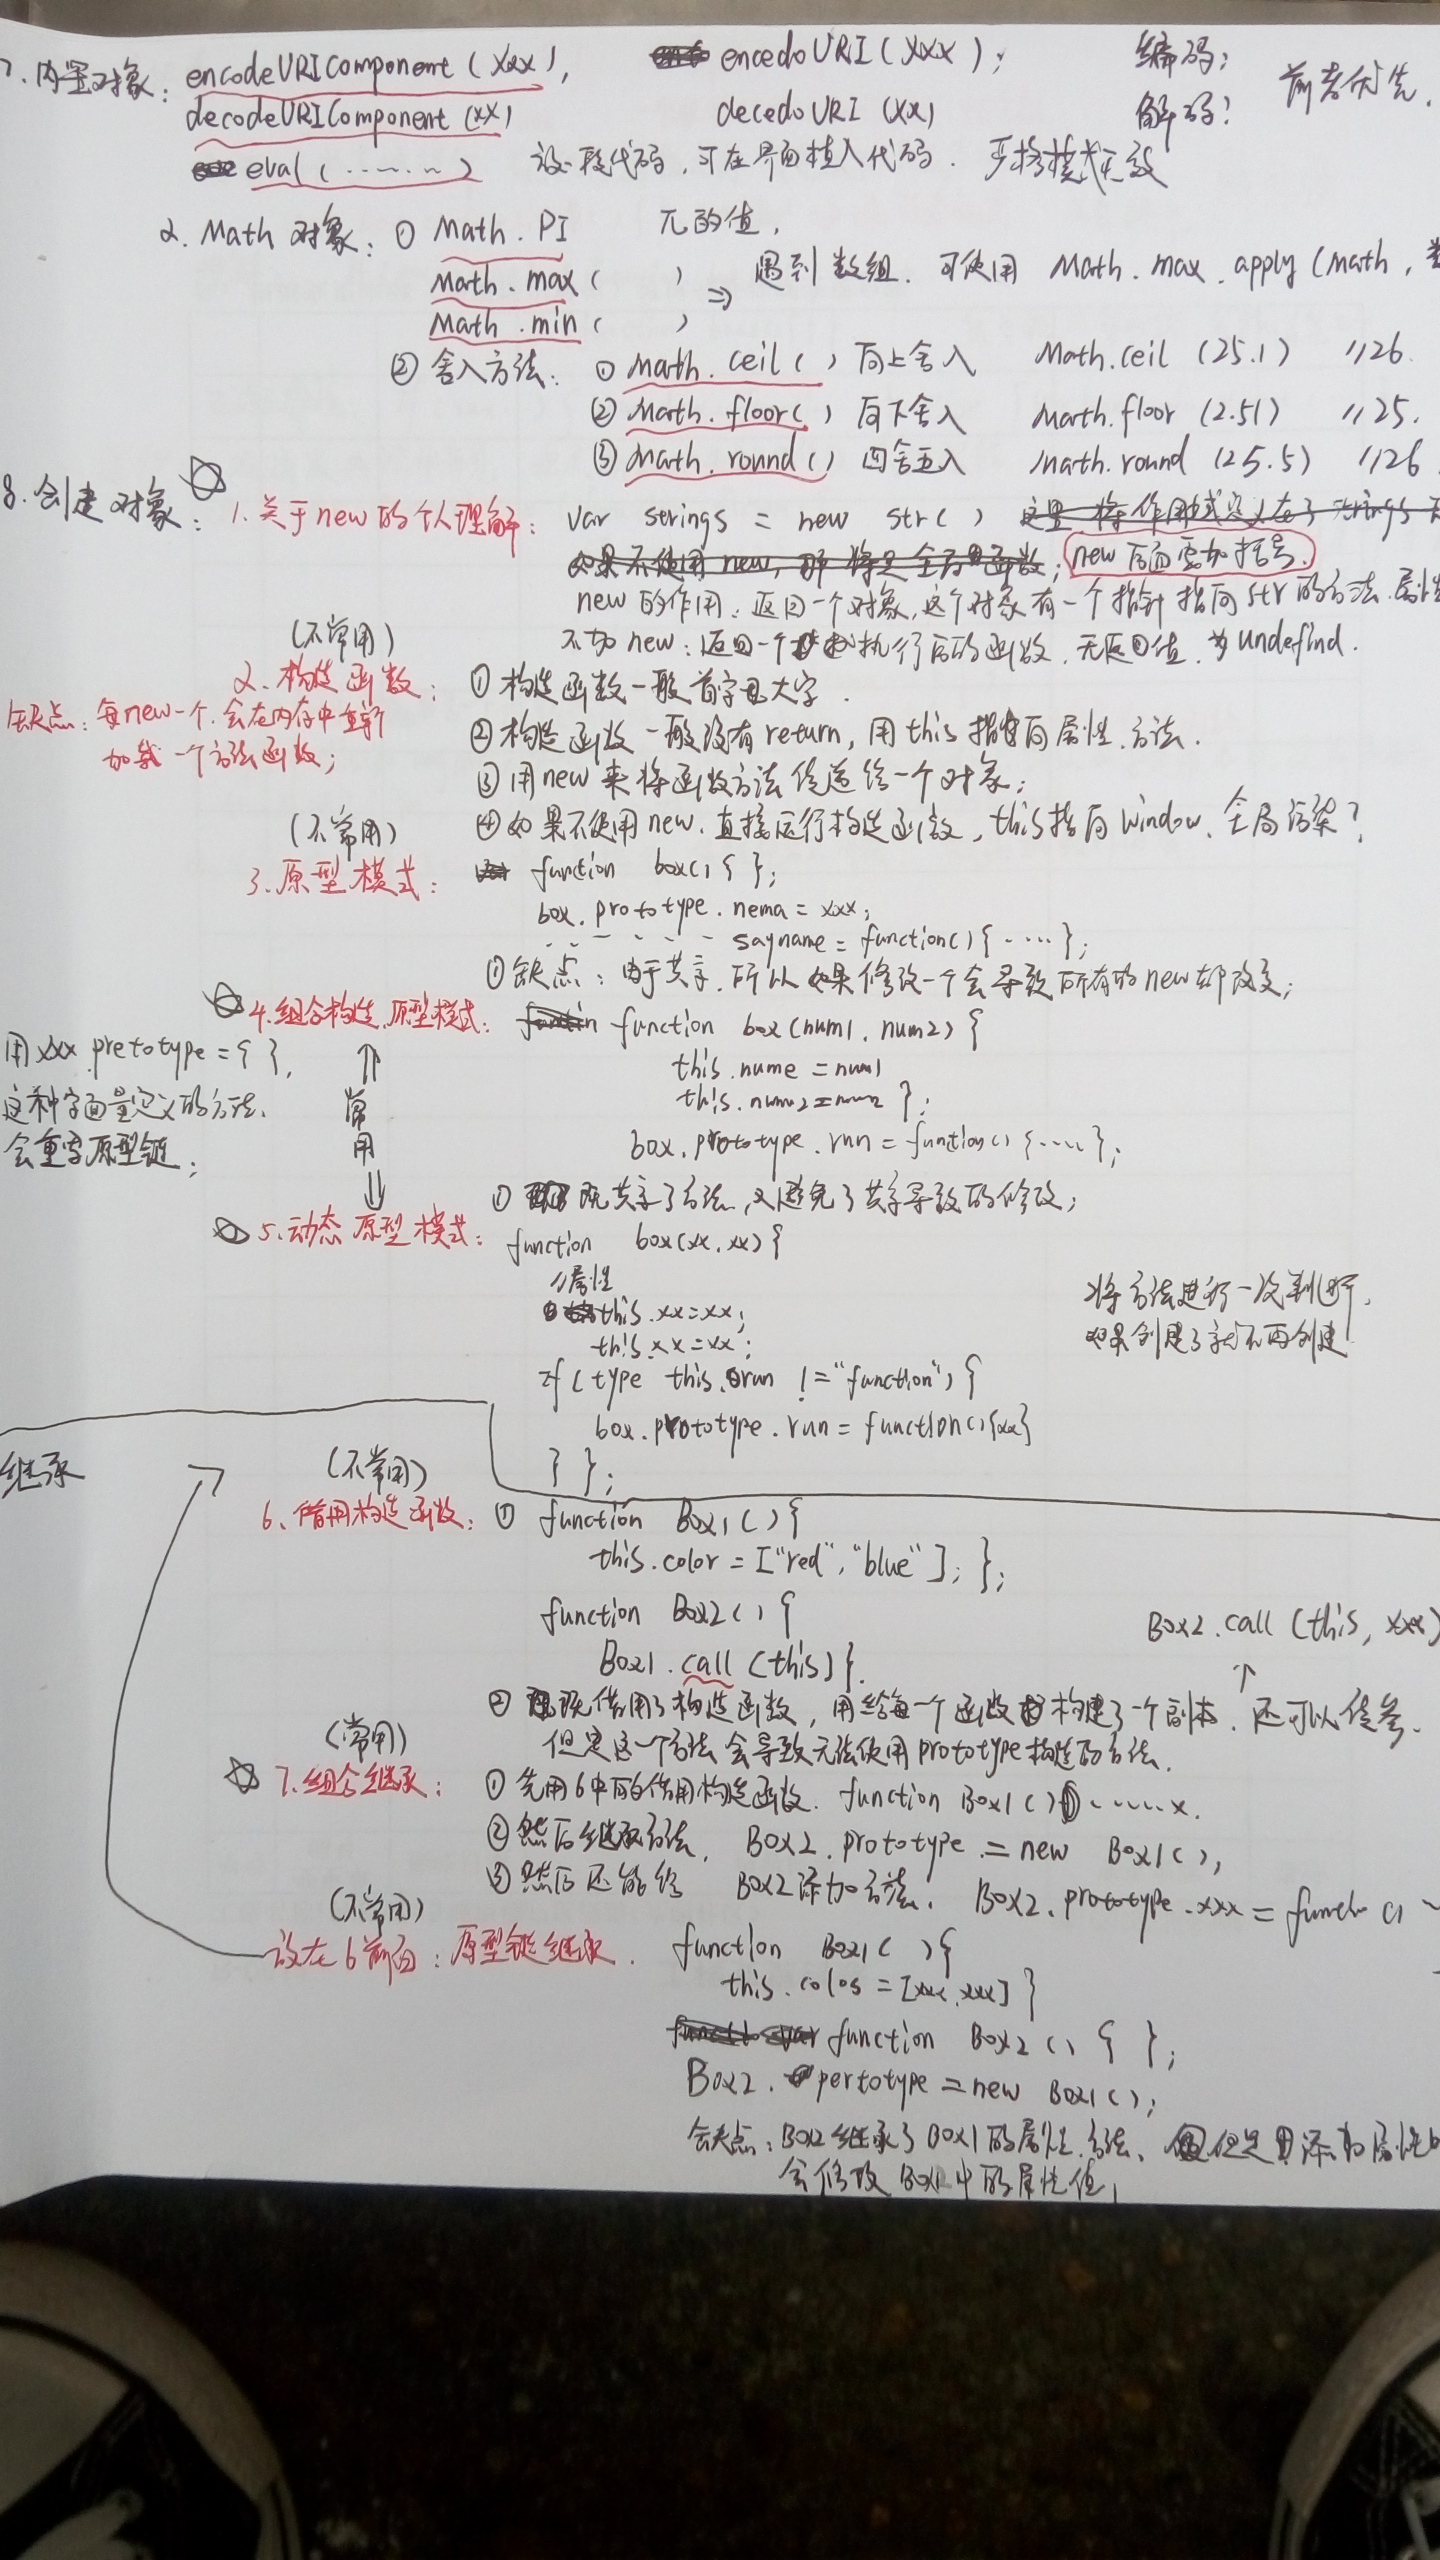 7. 内置对象: encodeURIComponent (xxx), encedoURI (xxx); 编码; 前者优先.
decodeURIComponent (xx) decedoURI (xx) 解码;
eval (......) 放一段代码, 可在界面植入代码. 严格模式无效
2. Math 对象: ① Math.PI 兀的值,
Math.max( ) ⇒ 遇到数组, 可使用 Math.max.apply (Math,
Math.min( )
② 舍入方法: ① Math.ceil( ) 向上舍入 Math.ceil (25.1) //26.
② Math.floor( ) 向下舍入 Math.floor (2.51) //25.
③ Math.round( ) 四舍五入 Math.round (25.5) //26
8. 创建对象: 1. 关于new的个人理解: var serings = new str( )
new后面要加括号.
new的作用: 返回一个对象, 这个对象有一个指针指向str的方法.属性
不加new: 返回一个执行后的函数. 无返回值. 为undefind.
(不常用)
2. 构造函数: ① 构造函数一般首字母大字.
缺点: 每new一个. 会在内存中重新
加载一个方法函数;
② 构造函数一般没有return, 用this指向属性.方法.
③ 用new来将函数方法传送给一个对象;
④ 如果不使用new. 直接运行构造函数, this指向window. 全局污染?
(不常用)
3. 原型模式: function box() { };
box.prototype.nema = xxx;
- - - - - - sayname = function() { .... };
① 缺点: 由于共享. 所以如果修改一个会导致所有的new都改变;
4. 组合构造.原型模式: function box (num1. num2) {
用xxx.pretotype = { },
这种字面量定义的方法.
会重写原型链;
常用
this.nume = num1
this.num2=num2 };
box.prototype.run = function() {....};
① 既共享了方法, 又避免了共享导致的修改;
5. 动态原型模式: function box(xx.xx) {
//属性
this.xx=xx;
this.xx=xx;
将方法进行一次判断,
如果创建了就不再创建
if (type this.run != "function") {
box.prototype.run = function() {xx}
} };
继承
(不常用)
6. 借用构造函数: ① function Box1 ( ) {
this.color = ["red", "blue"]; };
function Box2 ( ) {
Box1.call (this) }.
Box2.call (this, xxx)
② 既借用了构造函数, 用给每一个函数构建了一个副本. 还可以传参.
但是这一个方法会导致无法使用prototype构造的方法.
(常用)
7. 组合继承: ① 先用6中的借用构造函数. function Box1 ( ) .....x.
② 然后继承方法. Box2.prototype = new Box1( );
③ 然后还能给 Box2添加方法. Box2.prototype.xxx =
(不常用)
放在6前面: 原型链继承. function Box1 ( ) {
this.colos = [xxx.xxx] }
function Box2 ( ) { };
Box2.pertotype = new Box1( );
缺点: Box2继承了Box1的属性.方法.
会修改Box1中的属性值;